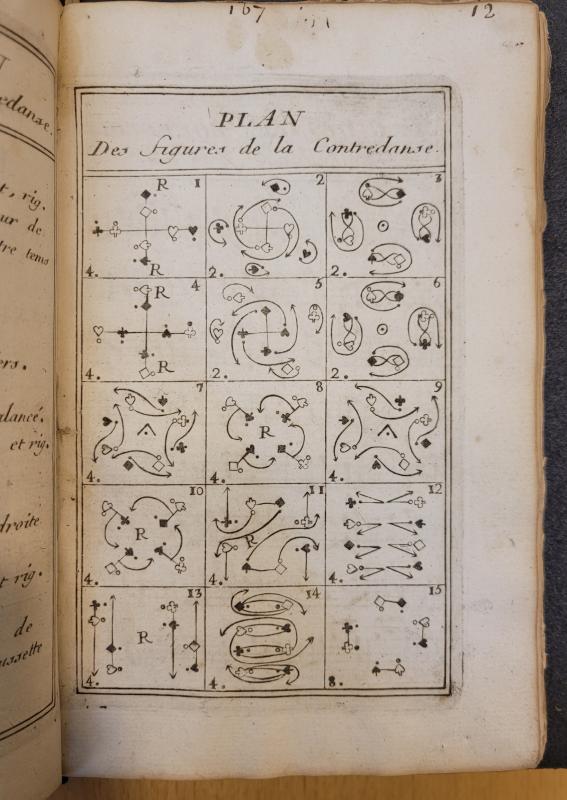 167
12
PLAN
Des figures de la Contredanse.
R 1 2 3
4. R 2. 2.
R 4 5 6
4. R 2. 2.
7 8 9
R
4. 4. 4.
10 11 12
R R
4. 4. 4.
13 14 15
R
4. 4. 8.
t, rig.
ur de
tre tems
ers.
alancé.
et rig.
droite
t rig.
de
ussette